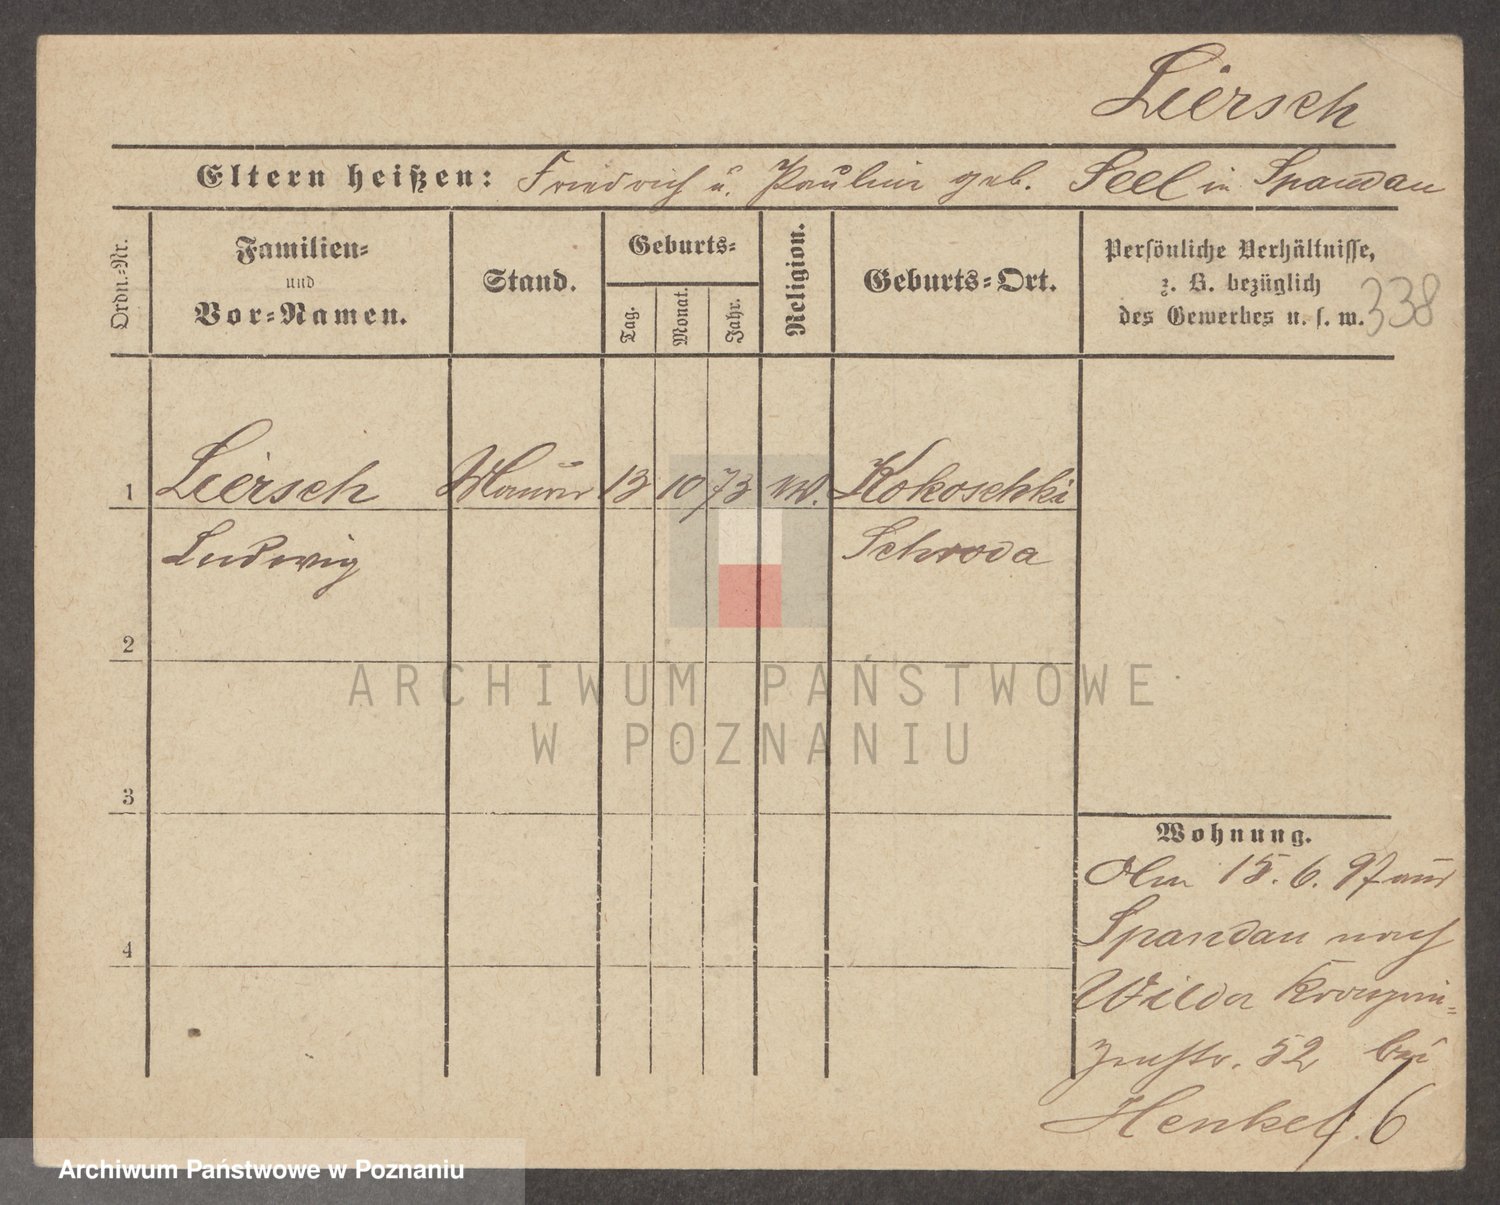 Liersch
Eltern heißen: Friedrich u. Pauline geb. Seel in Spandau
Ordn.-Nr.
Familien-
und
Vor-Namen.
Stand.
Geburts-
Tag.
Monat.
Jahr.
Religion.
Geburts-Ort.
Persönliche Verhältnisse,
z. B. bezüglich
des Gewerbes u. s. w.
338
1 Liersch Maurer 13 10 73 ev. Kokoschki
Ludwig Schroda
2
3
4
Wohnung.
Am 15. 6. 97 aus
Spandau nach
Wilda Kronprin-
zenstr. 52 bei
Henkel. 6
ARCHIWUM PAŃSTWOWE
W POZNANIU
Archiwum Państwowe w Poznaniu